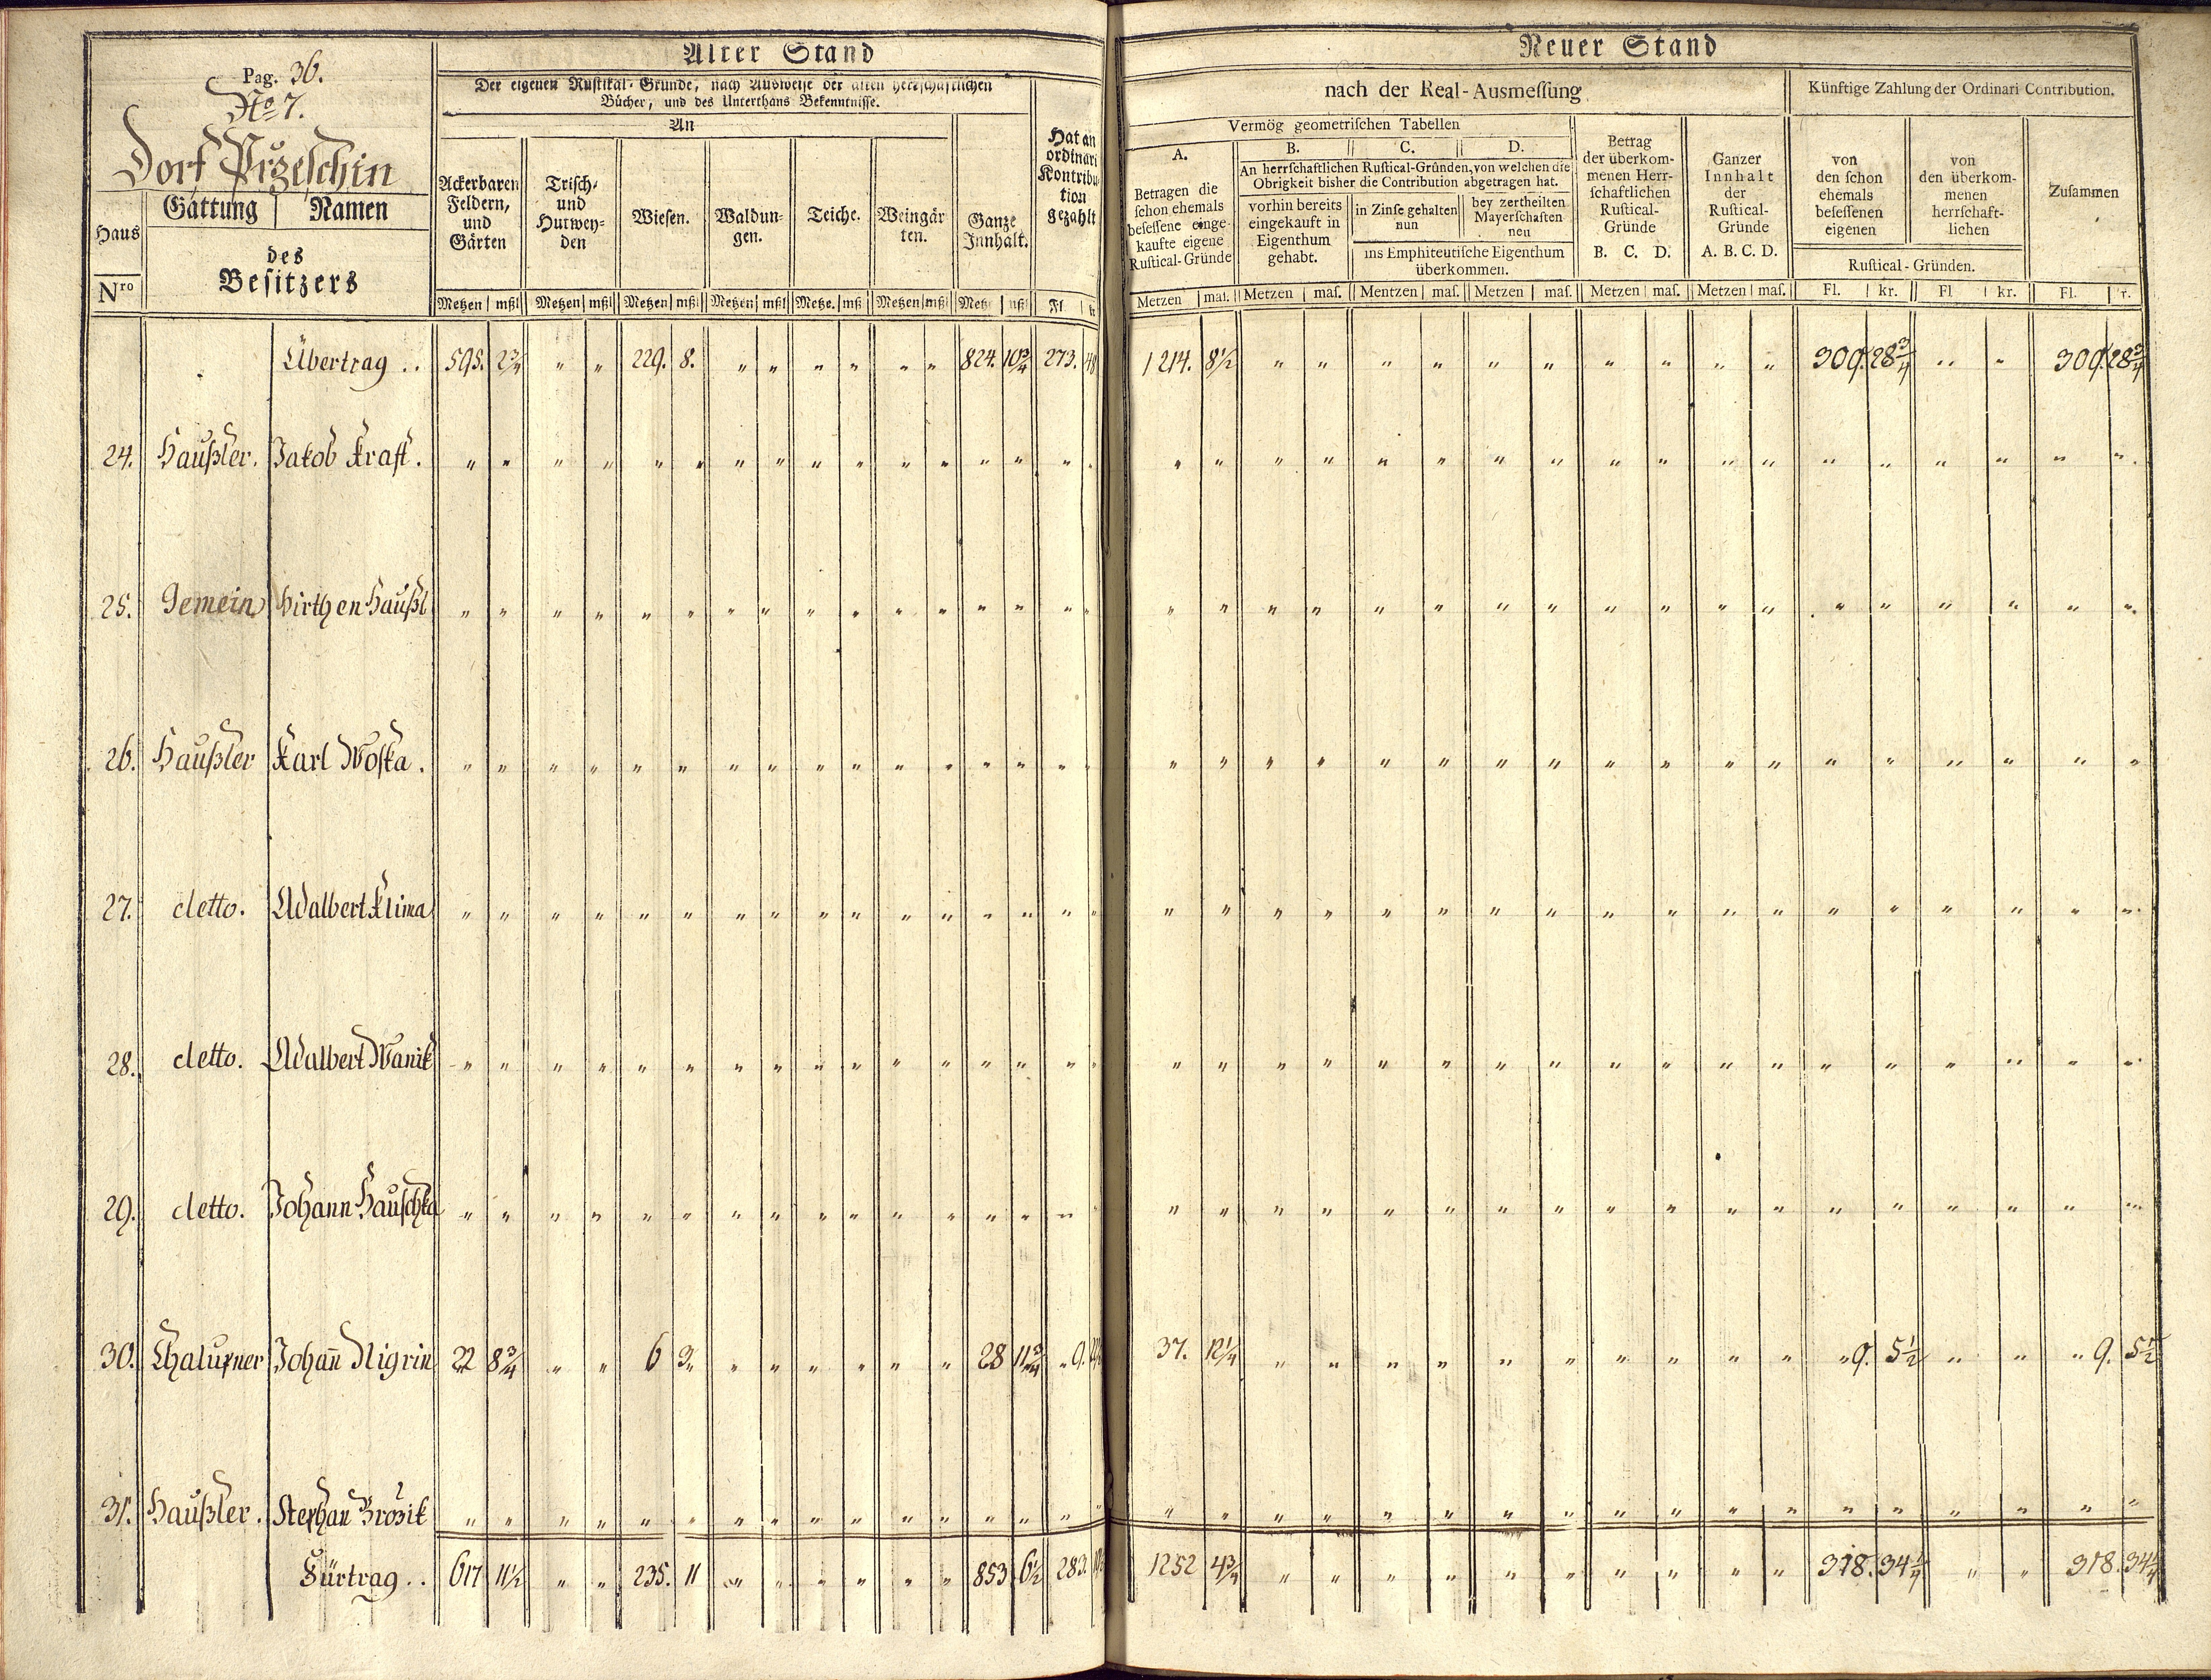 Alter Stand
Pag. 36.
No. 7.
Dorf Przeschin
Haus
Nro
Gattung Namen
des
Besitzers
Der eigenen Rustikal-Gründe, nach Ausweise der alten herrschaftlichen
Bücher, und des Unterthans Bekenntnisse.
An
Ackerbaren
Feldern,
und
Gärten
Trisch-
und
Hutwey-
den
Wiesen.
Waldun-
gen.
Teiche.
Weingär
ten.
Ganze
Innhalt.
Hat an
ordinari
Kontribu
tion
gezahlt
Metzen mßl Metzen mßl Metzen mßl Metzen mßl Metze. mßl Metzen mßl Metz mßl Fl. kr
Übertrag .. 595. 2 3/4 " " 229. 8. " " " " " " 824. 10 3/4 273. 48
24. Haußler. Jakob Kraft. " " " " " " " " " " " " " " " "
25. Gemein Hirthen Haußl " " " " " " " " " " " " " " " "
26. Haußler Karl Woska. " " " " " " " " " " " " " " " "
27. detto. Adalbert Klima " " " " " " " " " " " " " " " "
28. detto. Adalbert Wanik " " " " " " " " " " " " " " " "
29. detto. Johann Hauschka " " " " " " " " " " " " " " " "
30. Chalupner Johan̄ Nigrin 22 8 3/4 " " 6 3. " " " " " " 28 11 3/4 " 9.
31. Haußler. Stephan Brozik " " " " " " " " " " " " " " " "
Fürtrag .. 617 11 1/2 " " 235. 11 " " " " " " 853 6 1/2 283.
Neuer Stand
nach der Real-Ausmessung
Künftige Zahlung der Ordinari Contribution.
Vermög geometrischen Tabellen
A.
Betragen die
schon ehemals
besessene einge-
kaufte eigene
Rustical-Gründe
B. C. D.
An herrschaftlichen Rustical-Gründen, von welchen die
Obrigkeit bisher die Contribution abgetragen hat.
vorhin bereits
eingekauft in
Eigenthum
gehabt.
in Zinse gehalten
nun
bey zertheilten
Mayerschaften
neu
ins Emphiteutische Eigenthum
überkommen.
Betrag
der überkom-
menen Herr-
schaftlichen
Rustical-
Gründe
B. C. D.
Ganzer
Innhalt
der
Rustical-
Gründe
A. B. C. D.
von
den schon
ehemals
besessenen
eigenen
von
den überkom-
menen
herrschaft-
lichen
Rustical-Gründen.
Zusammen
Metzen mas. Metzen mas. Mentzen mas. Metzen mas. Metzen mas. Metzen mas. Fl. kr. Fl kr. Fl. r.
1214. 8 1/2 " " " " " " " " " " 309. 28 3/4 " " 309. 28 3/4
" " " " " " " " " " " " " " " " " "
" " " " " " " " " " " " " " " " " "
" " " " " " " " " " " " " " " " " "
" " " " " " " " " " " " " " " " " "
" " " " " " " " " " " " " " " " " "
" " " " " " " " " " " " " " " " " "
37. 12 1/4 " " " " " " " " " " " 9. 5 1/2 " " " 9. 5 1/2
" " " " " " " " " " " " " " " " " "
1252 4 3/4 " " " " " " " " " " 318. 34 1/4 " " 318. 34 1/4